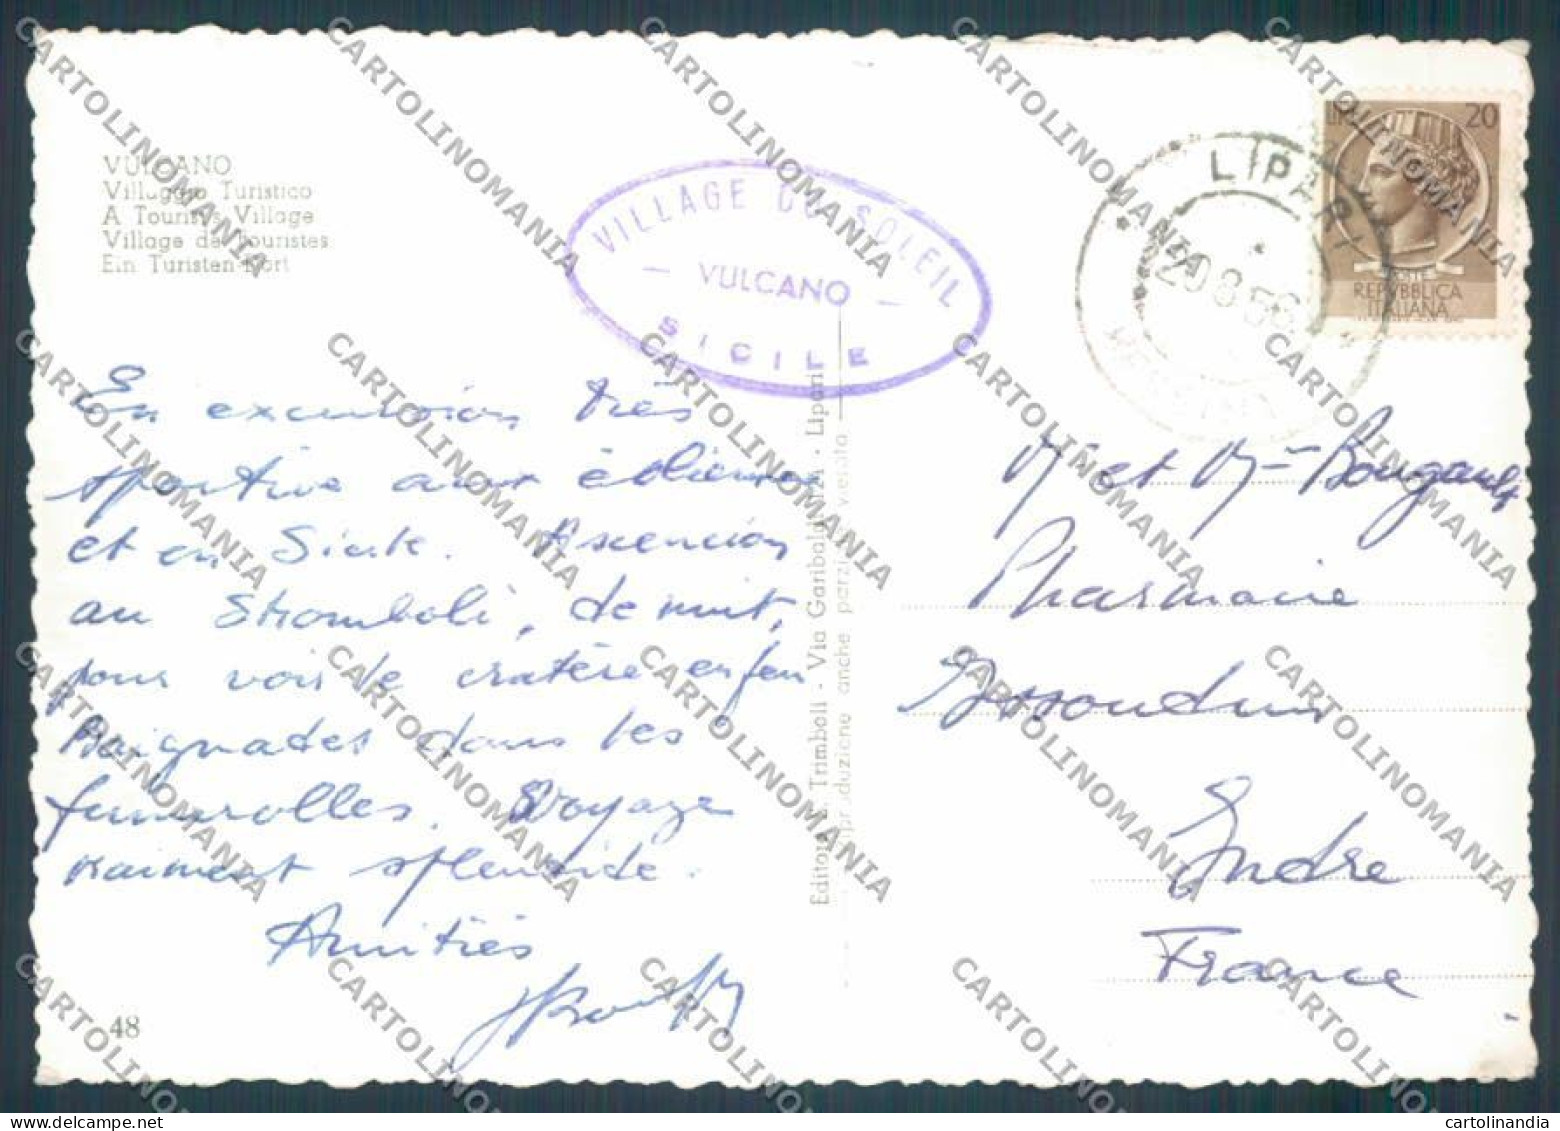 VULCANO
Villaggio Turistico
A Tourist's Village
Village des Touristes
Ein Turisten-Dort
VILLAGE DU SOLEIL
— VULCANO —
SICILE
LIPARI
20 8 56
MESSINA
20
REPVBBLICA
ITALIANA
En excursion très
sportive aux éoliennes
et en Sicile. Ascencion
au Stromboli, de nuit,
pour voir le cratère en feu
Baignades dans les
fumerolles. Voyage
vraiment splendide.
Amitiés
48
Editore F. Trimboli - Via Garibaldi - Lipari
Riproduzione anche parziale vietata
Mr et Mme Bougault
Pharmacie
Issoudun
Indre
France
CARTOLINOMANIA
cartolinomania.com
cartolinandia